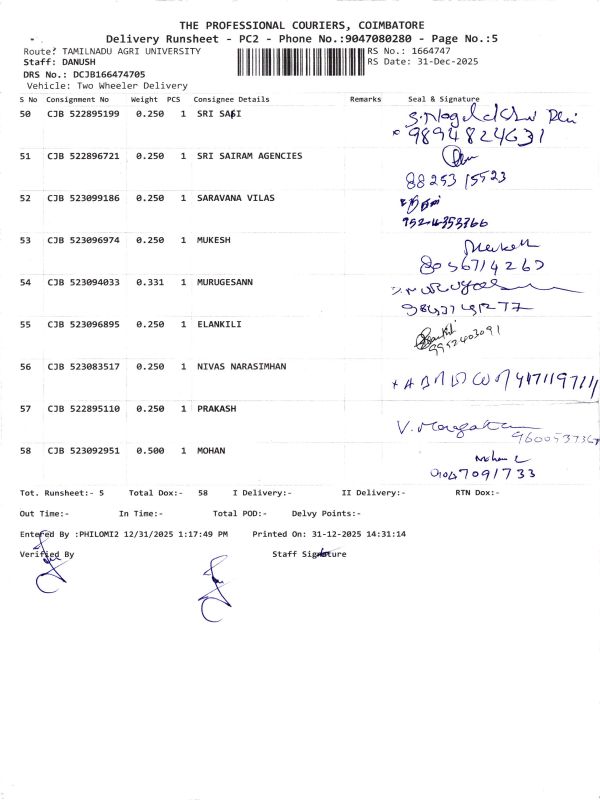 THE PROFESSIONAL COURIERS, COIMBATORE
Delivery Runsheet - PC2 - Phone No.:9047080280 - Page No.:5
Route: TAMILNADU AGRI UNIVERSITY RS No.: 1664747
Staff: DANUSH RS Date: 31-Dec-2025
DRS No.: DCJB166474705
Vehicle: Two Wheeler Delivery
S No Consignment No Weight PCS Consignee Details Remarks Seal & Signature
50 CJB 522895199 0.250 1 SRI SAGI
9894824631
51 CJB 522896721 0.250 1 SRI SAIRAM AGENCIES
88253 15523
52 CJB 523099186 0.250 1 SARAVANA VILAS
53 CJB 523096974 0.250 1 MUKESH
Mukesh
54 CJB 523094033 0.331 1 MURUGESANN
55 CJB 523096895 0.250 1 ELANKILI
9952403091
56 CJB 523083517 0.250 1 NIVAS NARASIMHAN
57 CJB 522895110 0.250 1 PRAKASH
58 CJB 523092951 0.500 1 MOHAN
Mohan
9047091733
Tot. Runsheet:- 5 Total Dox:- 58 I Delivery:- II Delivery:- RTN Dox:-
Out Time:- In Time:- Total POD:- Delvy Points:-
Entered By :PHILOMI2 12/31/2025 1:17:49 PM Printed On: 31-12-2025 14:31:14
Verified By Staff Signature